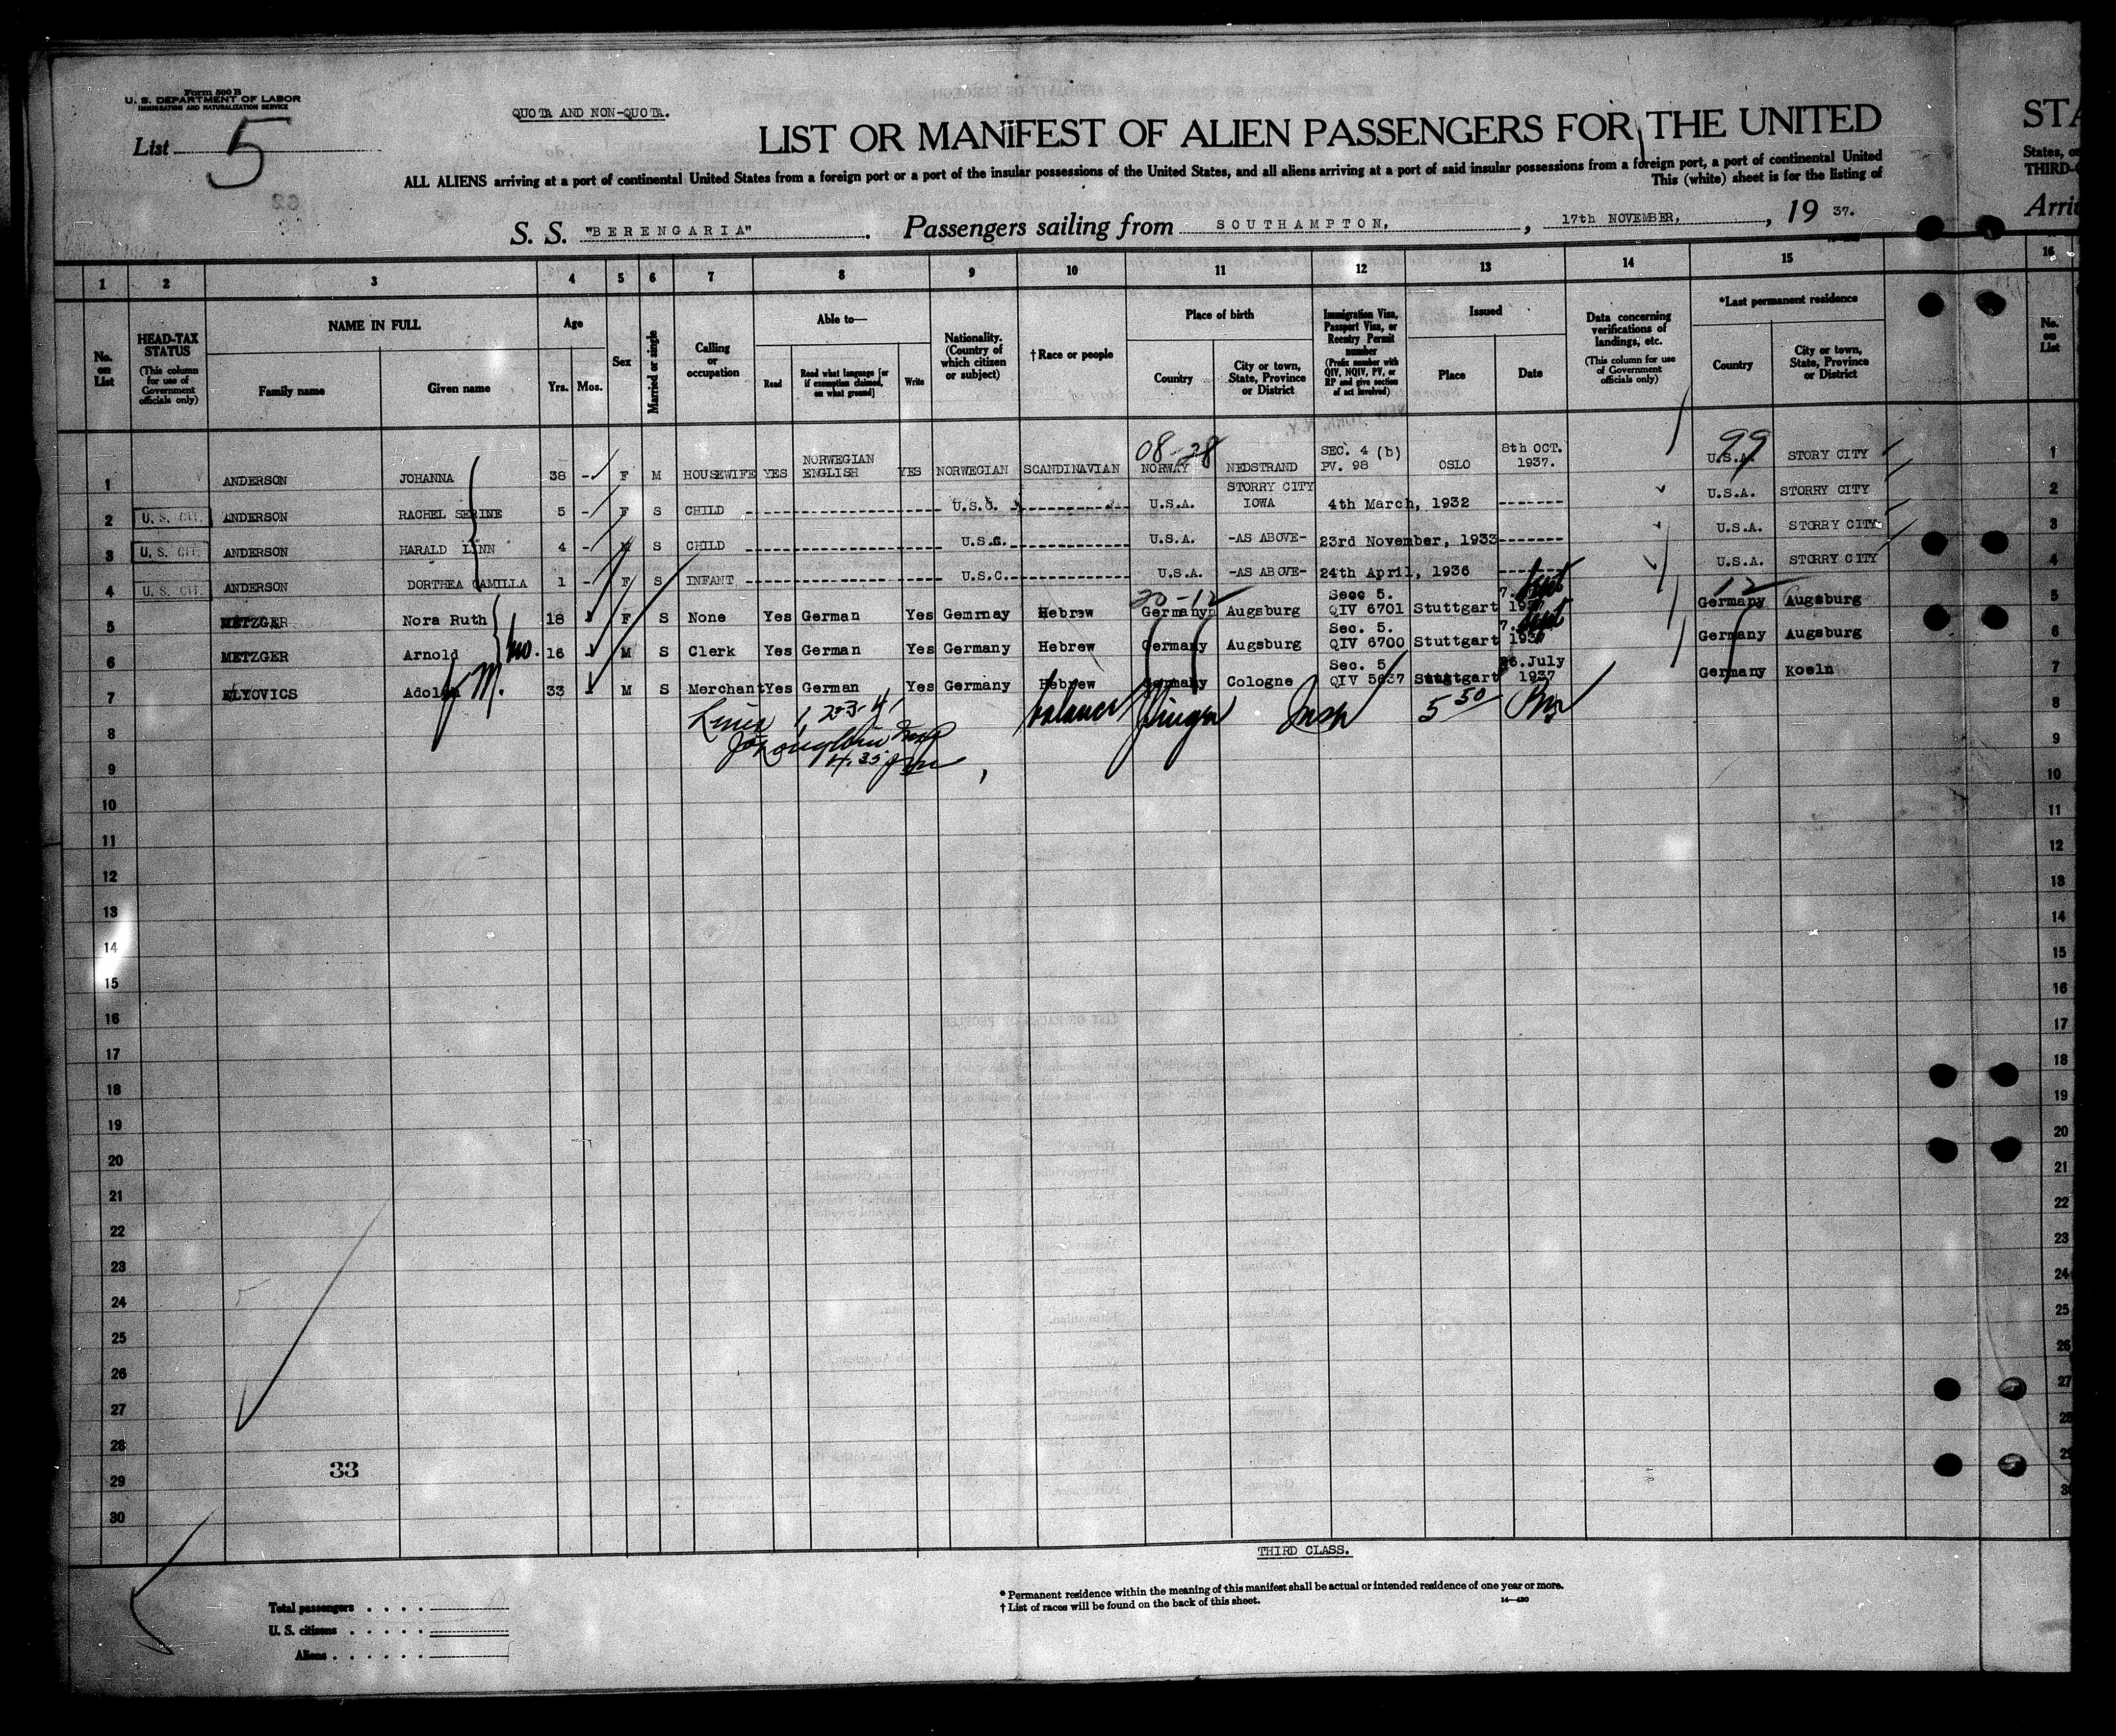 Form 500 B
U. S. DEPARTMENT OF LABOR
IMMIGRATION AND NATURALIZATION SERVICE
List 5
QUOTA AND NON-QUOTA.
LIST OR MANIFEST OF ALIEN PASSENGERS FOR THE UNITED
STA
ALL ALIENS arriving at a port of continental United States from a foreign port or a port of the insular possessions of the United States, and all aliens arriving at a port of said insular possessions from a foreign port, a port of continental United
States, o
This (white) sheet is for the listing of
THIRD-C
S. S. "BERENGARIA" . Passengers sailing from SOUTHAMPTON, , 17th NOVEMBER, , 19 37.
Arri
1 2 3 4 5 6 7 8 9 10 11 12 13 14 15 16
No. on List
HEAD-TAX STATUS
(This column for use of Government officials only)
NAME IN FULL
Family name
Given name
Age
Yrs.
Mos.
Sex
Married or single
Calling or occupation
Able to—
Read
Read what language [or if exemption claimed, on what ground]
Write
Nationality. (Country of which citizen or subject)
† Race or people
Place of birth
Country
City or town, State, Province or District
Immigration Visa, Passport Visa, or Reentry Permit number
(Prefix number with QIV, NQIV, PV, or RP and give section of act involved)
Issued
Place
Date
Data concerning verifications of landings, etc.
(This column for use of Government officials only)
*Last permanent residence
Country
City or town, State, Province or District
No. on List
08-28
99
1 ANDERSON JOHANNA 38 - F M HOUSEWIFE YES NORWEGIAN ENGLISH YES NORWEGIAN SCANDINAVIAN NORWAY NEDSTRAND SEC. 4 (b) PV. 98 OSLO 8th OCT. 1937. U.S.A. STORY CITY 1
2 U. S. CIT. ANDERSON RACHEL SERINE 5 - F S CHILD U.S.C. U.S.A. STORRY CITY IOWA 4th March, 1932 U.S.A. STORRY CITY 2
3 U. S. CIT. ANDERSON HARALD LINN 4 - M S CHILD U.S.C. U.S.A. -AS ABOVE- 23rd November, 1933 U.S.A. STORRY CITY 3
4 U. S. CIT. ANDERSON DORTHEA CAMILLA 1 - F S INFANT U.S.C. U.S.A. -AS ABOVE- 24th April, 1936 U.S.A. STORRY CITY 4
20-12
12
5 METZGER Nora Ruth 18 F S None Yes German Yes Gemrnay Hebrew Germany Augsburg Secc 5. QIV 6701 Stuttgart 7. Sept 1937 Germany Augsburg 5
6 METZGER Arnold 16 M S Clerk Yes German Yes Germany Hebrew Germany Augsburg Sec. 5. QIV 6700 Stuttgart 7. Sept 1937 Germany Augsburg 6
7 ELYOVICS Adolph 33 M S Merchant Yes German Yes Germany Hebrew Germany Cologne Sec. 5 QIV 5637 Stuttgart 26.July 1937 Germany Koeln 7
Lines 1, 2-3-4
balance
Insp
5 50
4.35 pm
8
9
10
11
12
13
14
15
16
17
18
19
20
21
22
23
24
25
26
27
28
29
30
33
THIRD CLASS.
Total passengers
U. S. citizens
Aliens
* Permanent residence within the meaning of this manifest shall be actual or intended residence of one year or more.
† List of races will be found on the back of this sheet.
14—430